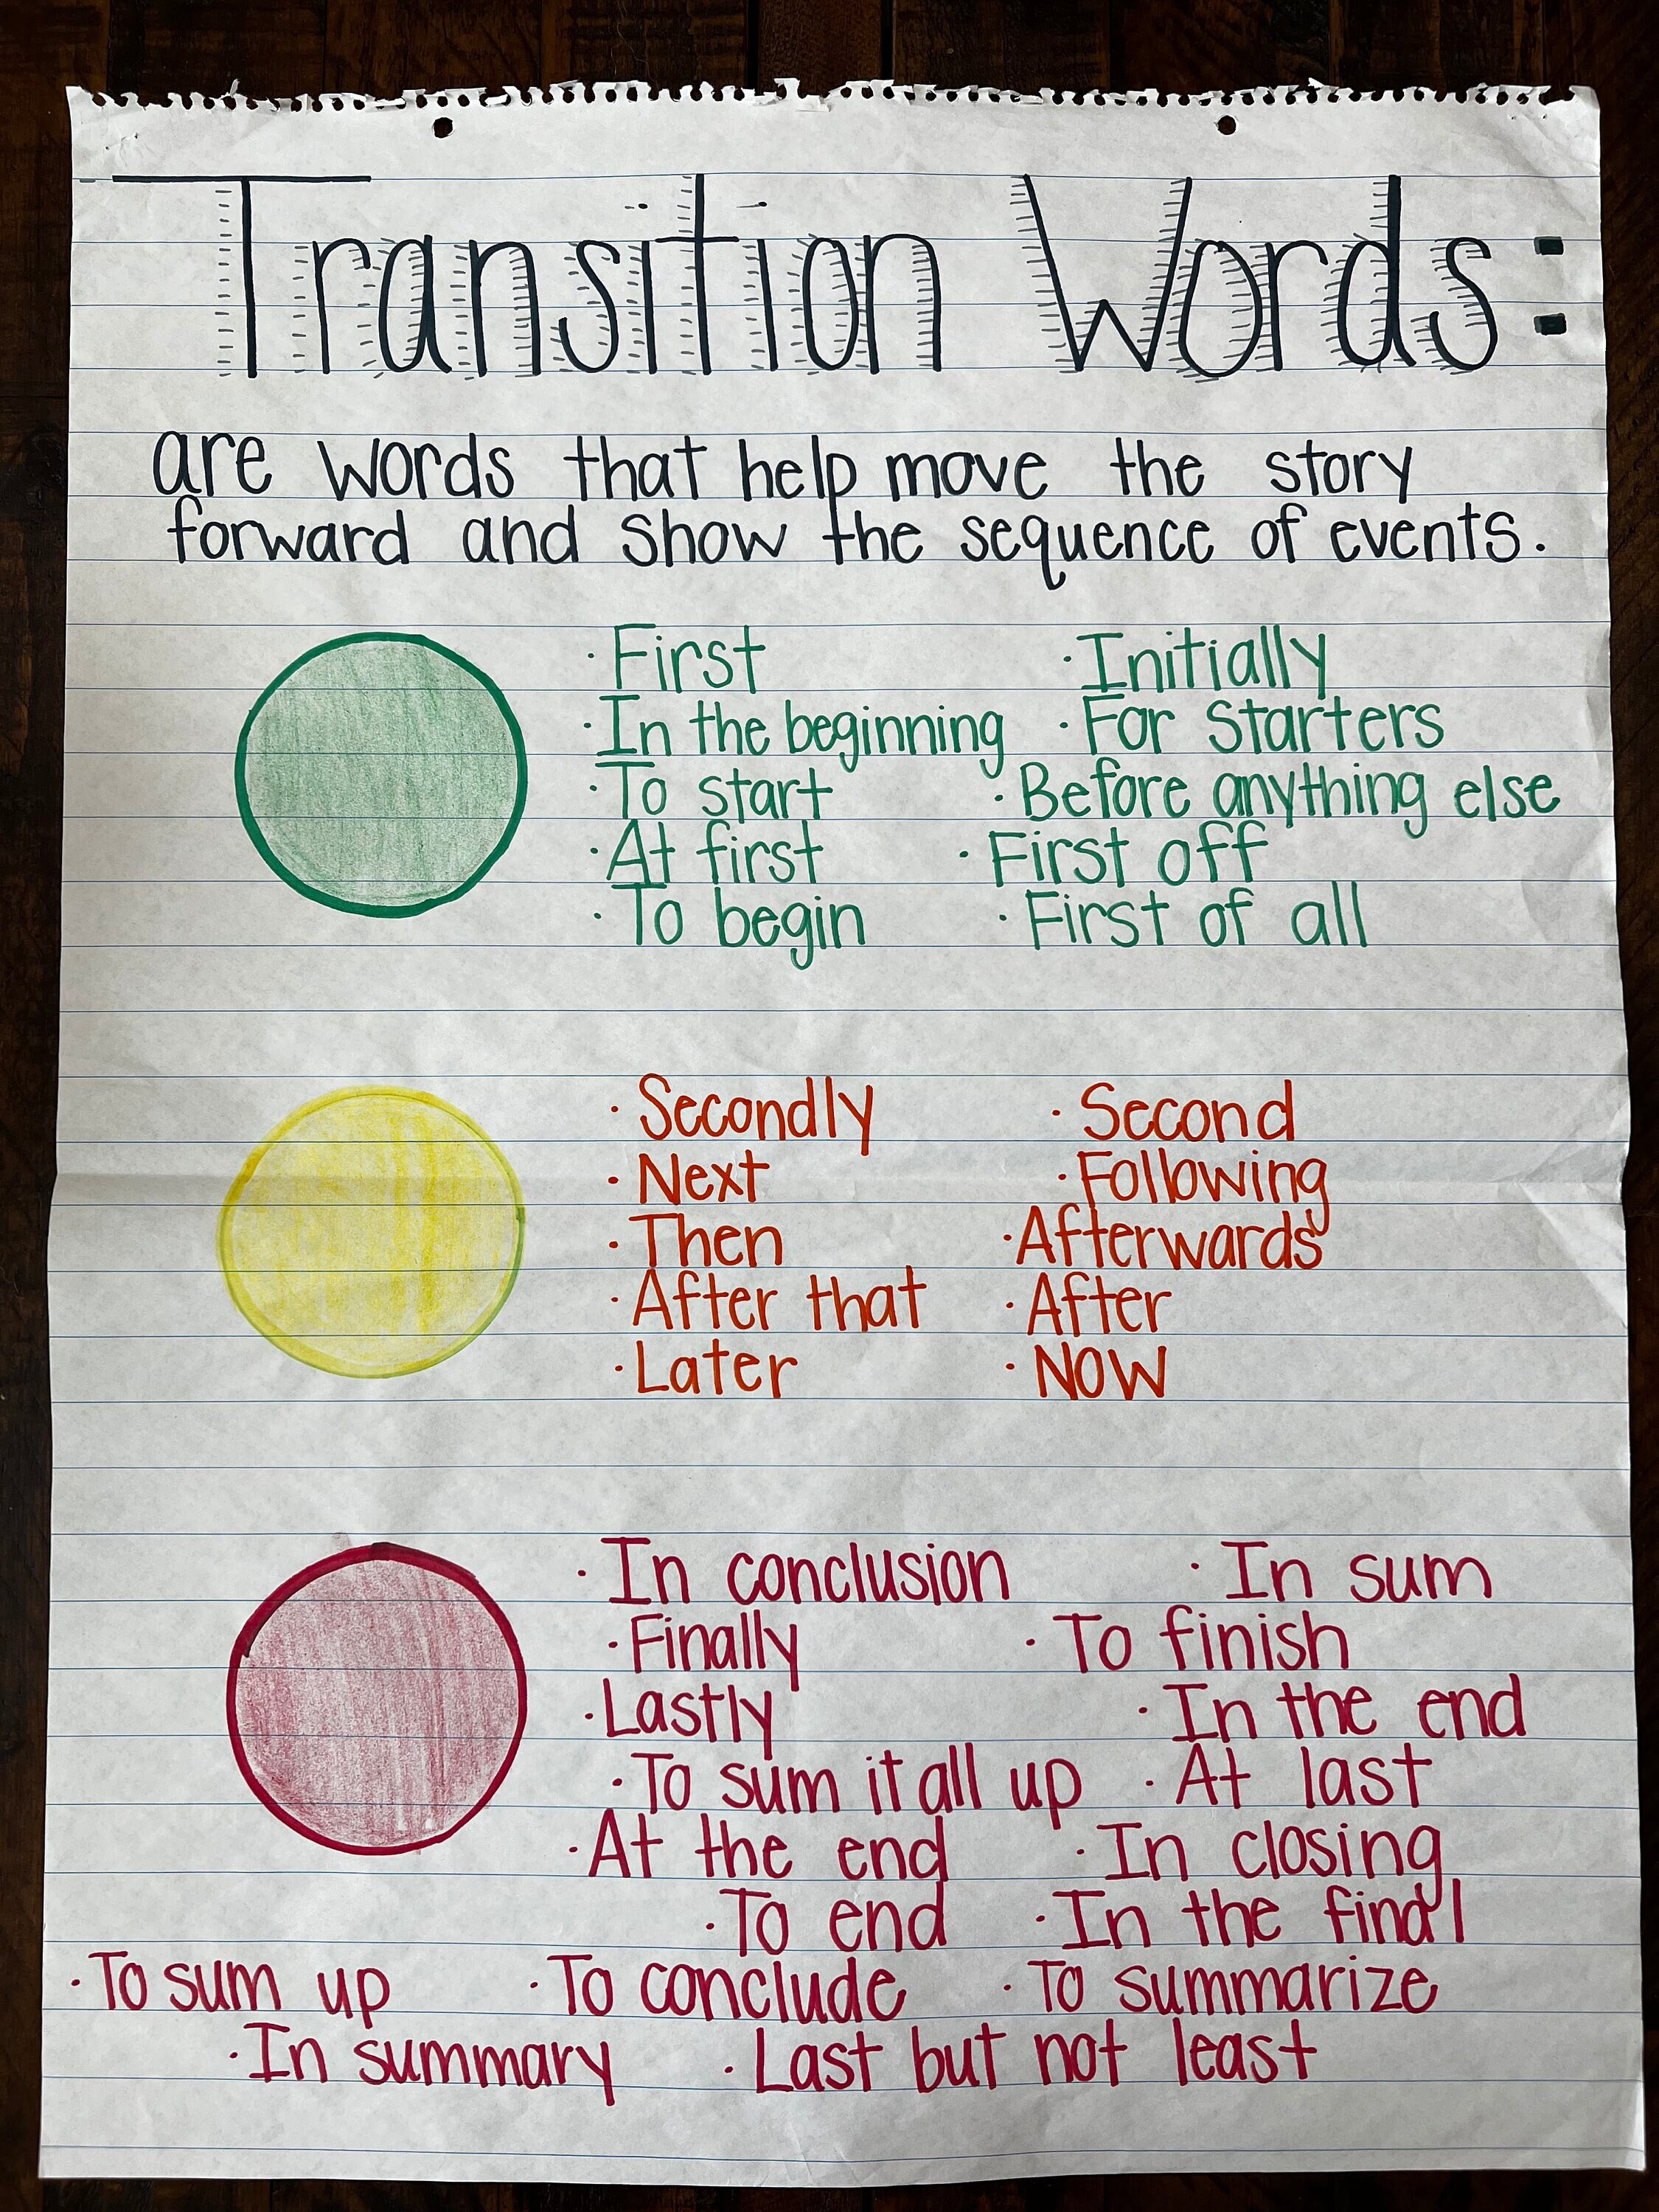 Transition Words:
are words that help move the story
forward and show the sequence of events.
· First · Initially
· In the beginning · For starters
· To start · Before anything else
· At first · First off
· To begin · First of all
· Secondly · Second
· Next · Following
· Then · Afterwards
· After that · After
· Later · Now
· In conclusion · In sum
· Finally · To finish
· Lastly · In the end
· To sum it all up · At last
· At the end · In closing
· To end · In the final
· To sum up · To conclude · To summarize
· In summary · Last but not least